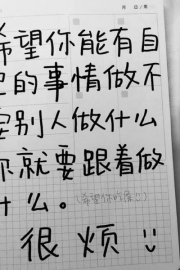 希望你能有自
己的事情做不
要别人做什么
你就要跟着做
什么。(希望你
很烦